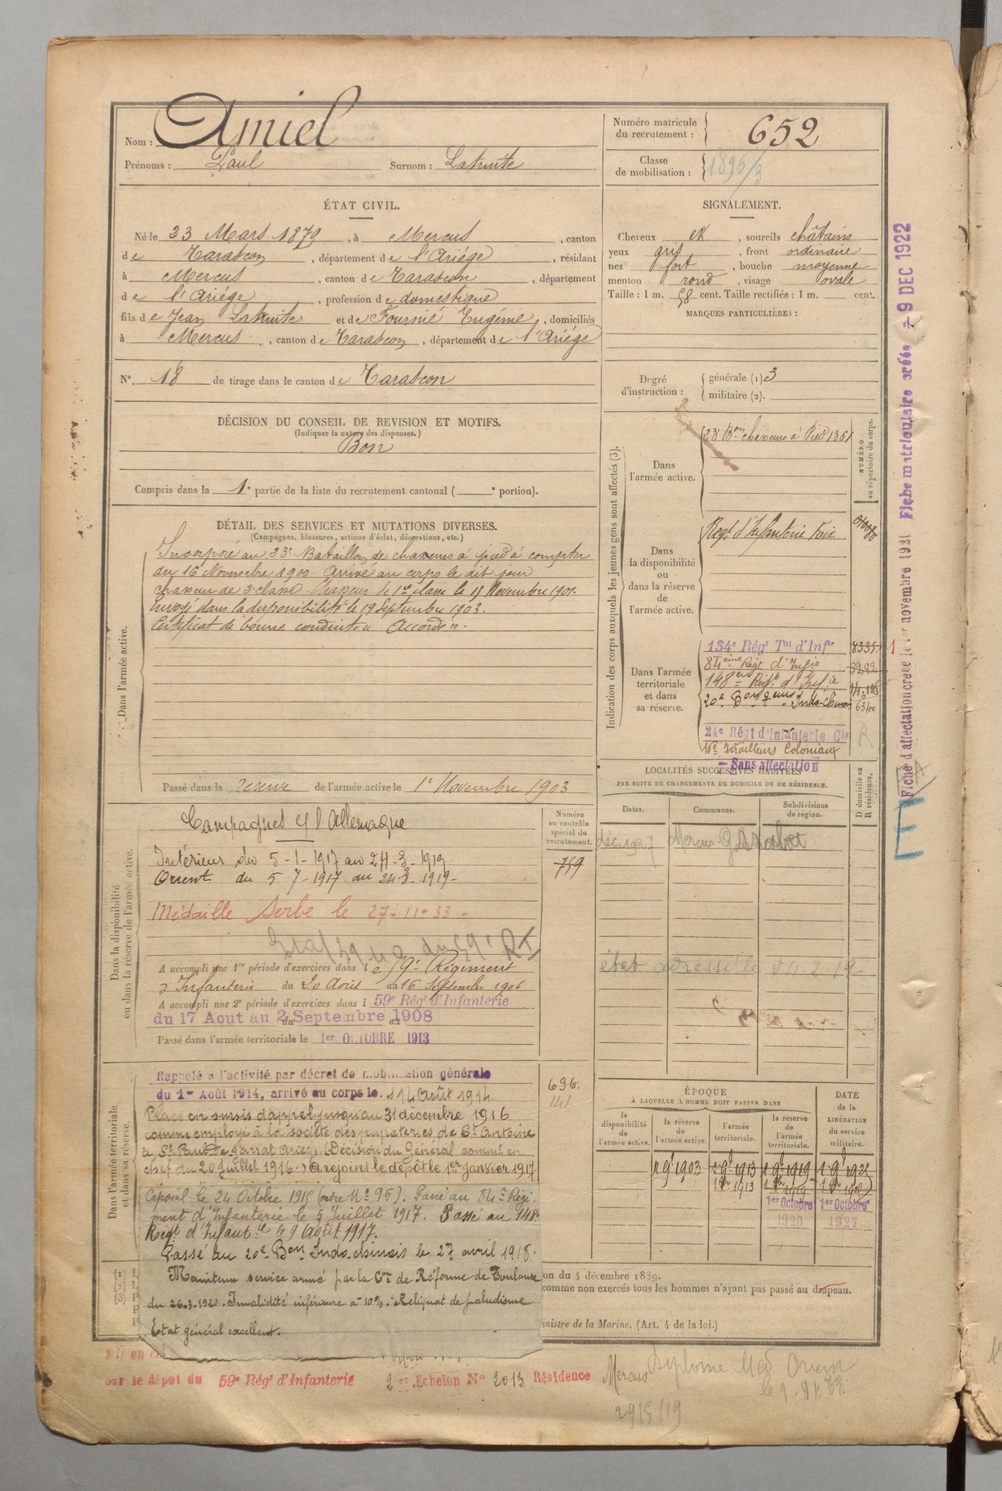 Nom : Amiel
Prénoms : Paul Surnom : Latruite
Numéro matricule du recrutement : 652
Classe de mobilisation : 1895/3
ÉTAT CIVIL.
Né le 23 Mars 1879, à Mercus, canton
de Tarascon, département de l'Ariége, résidant
à Mercus, canton de Tarascon, département
de l'Ariége, profession de domestique
fils de Jean Latruite et de Fournié Eugénie, domiciliés
à Mercus, canton de Tarascon, département de l'Ariége
N° 18 de tirage dans le canton de Tarascon
SIGNALEMENT.
Cheveux et, sourcils châtains
yeux gris, front ordinaire
nez fort, bouche moyenne
menton rond, visage ovale
Taille : 1 m. 58 cent. Taille rectifiée : 1 m. cent.
MARQUES PARTICULIÈRES :
Degré d'instruction : générale (1) 3
militaire (2).
DÉCISION DU CONSEIL DE REVISION ET MOTIFS.
(Indiquer la nature des dispenses.)
Bon
Compris dans la 1e partie de la liste du recrutement cantonal ( e portion).
DÉTAIL DES SERVICES ET MUTATIONS DIVERSES.
(Campagnes, blessures, actions d'éclat, décorations, etc.)
Dans l'armée active.
Incorporé au 23e Bataillon de chasseurs à pied à compter
du 16 Novembre 1900. Arrivé au corps le dit jour
chasseur de 2e classe.
Envoyé dans la disponibilité le 19 Septembre 1903.
Certificat de bonne conduite : Accordé.
Passé dans la réserve de l'armée active le 1er Novembre 1903
Indication des corps auxquels les jeunes gens sont affectés (3).
NUMÉRO au répertoire du corps.
Dans l'armée active.
23e Bon chasseurs à Pied 1351
Dans la disponibilité ou dans la réserve de l'armée active.
Régt d'Infanterie Foix
Dans l'armée territoriale et dans sa réserve.
134e Régt Tal d'Infie 8335
84ème Régt d'Infie
148ème Régt d'Infie
20e Bon Indo-chinois
24e Régt d'Infanterie Cle
Tirailleurs Coloniaux
- Sans affectation
Fiche d'affectation créée le 1er novembre 1921 Fiche matriculaire créée 9 DEC 1922
LOCALITÉS SUCCESSIVES HABITÉES
PAR SUITE DE CHANGEMENTS DE DOMICILE OU DE RÉSIDENCE.
Dates. Communes. Subdivisions de région. D domicile ou R résidence.
Mercus
Dans la disponibilité ou dans la réserve de l'armée active.
Numéro au contrôle spécial du recrutement.
759
Campagnes c/ l'Allemagne
Intérieur du 5-1-1917 au 24-3-1919
Orient du 5-7-1917 au 24-3-1919-
Médaille Serbe le 27-11-33-
A accompli une 1re période d'exercices dans le 59e Régiment
d'Infanterie du 20 Août au 16 Septembre 1906
A accompli une 2e période d'exercices dans l 59e Régt d'Infanterie
du 17 Aout au 2 Septembre 1908
Passé dans l'armée territoriale le 1er OCTOBRE 1913
Dans l'armée territoriale et dans sa réserve.
696
Rappelé à l'activité par décret de mobilisation générale
du 1er Août 1914, arrivé au corps le 14 Août 1914.
Placé en sursis d'appel jusqu'au 31 décembre 1916
comme employé à la société des papeteries de St Antoine
(Décision du Général commt en
chef du 20 Juillet 1916.) A rejoint le dépôt le 1er janvier 1917
Caporal le 24 Octobre 1915 (ordre No 95). Passé au 84e Régi-
ment d'Infanterie le 5 Juillet 1917. Passé au 148e
Régt d'Infanterie le 9 Août 1917.
Passé au 20e Bon Indo chinois le 27 avril 1918.
Maintenu service armé par la Con de Réforme de Toulouse
du 26.3.1920. Invalidité inférieure à 10%. Reliquat de paludisme
Etat général excellent.
ÉPOQUE
À LAQUELLE L'HOMME DOIT PASSER DANS
la disponibilité de l'armée active. la réserve de l'armée active. l'armée territoriale. la réserve de l'armée territoriale. DATE de la LIBÉRATION du service militaire.
1er Octobre 1920 1er Octobre 1927
on du 4 décembre 1889.
comme non exercés tous les hommes n'ayant pas passé au drapeau.
inistre de la Marine. (Art. 4 de la loi.)
par le dépôt du 59e Régt d'Infanterie 2e Echelon N° 2013 Résidence Mercus
Diplome Med Orient
2915/19